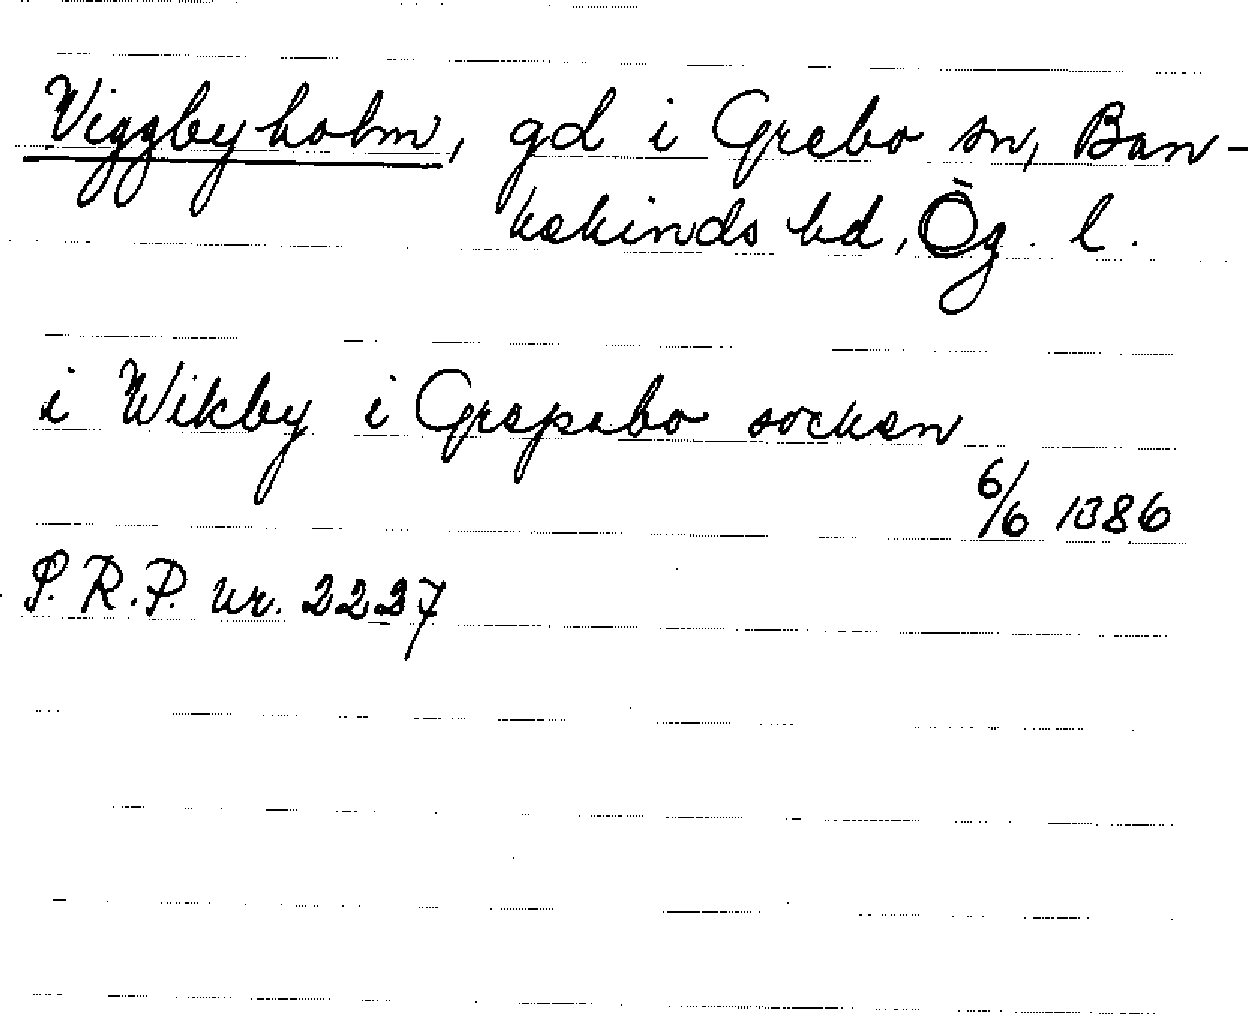 Viggbyholm, gd i Grebo sn, Ban-
kekinds hd, Ög. l.
i Wikby i Grepabo socken
6/6 1386
P.R.P. nr. 2227